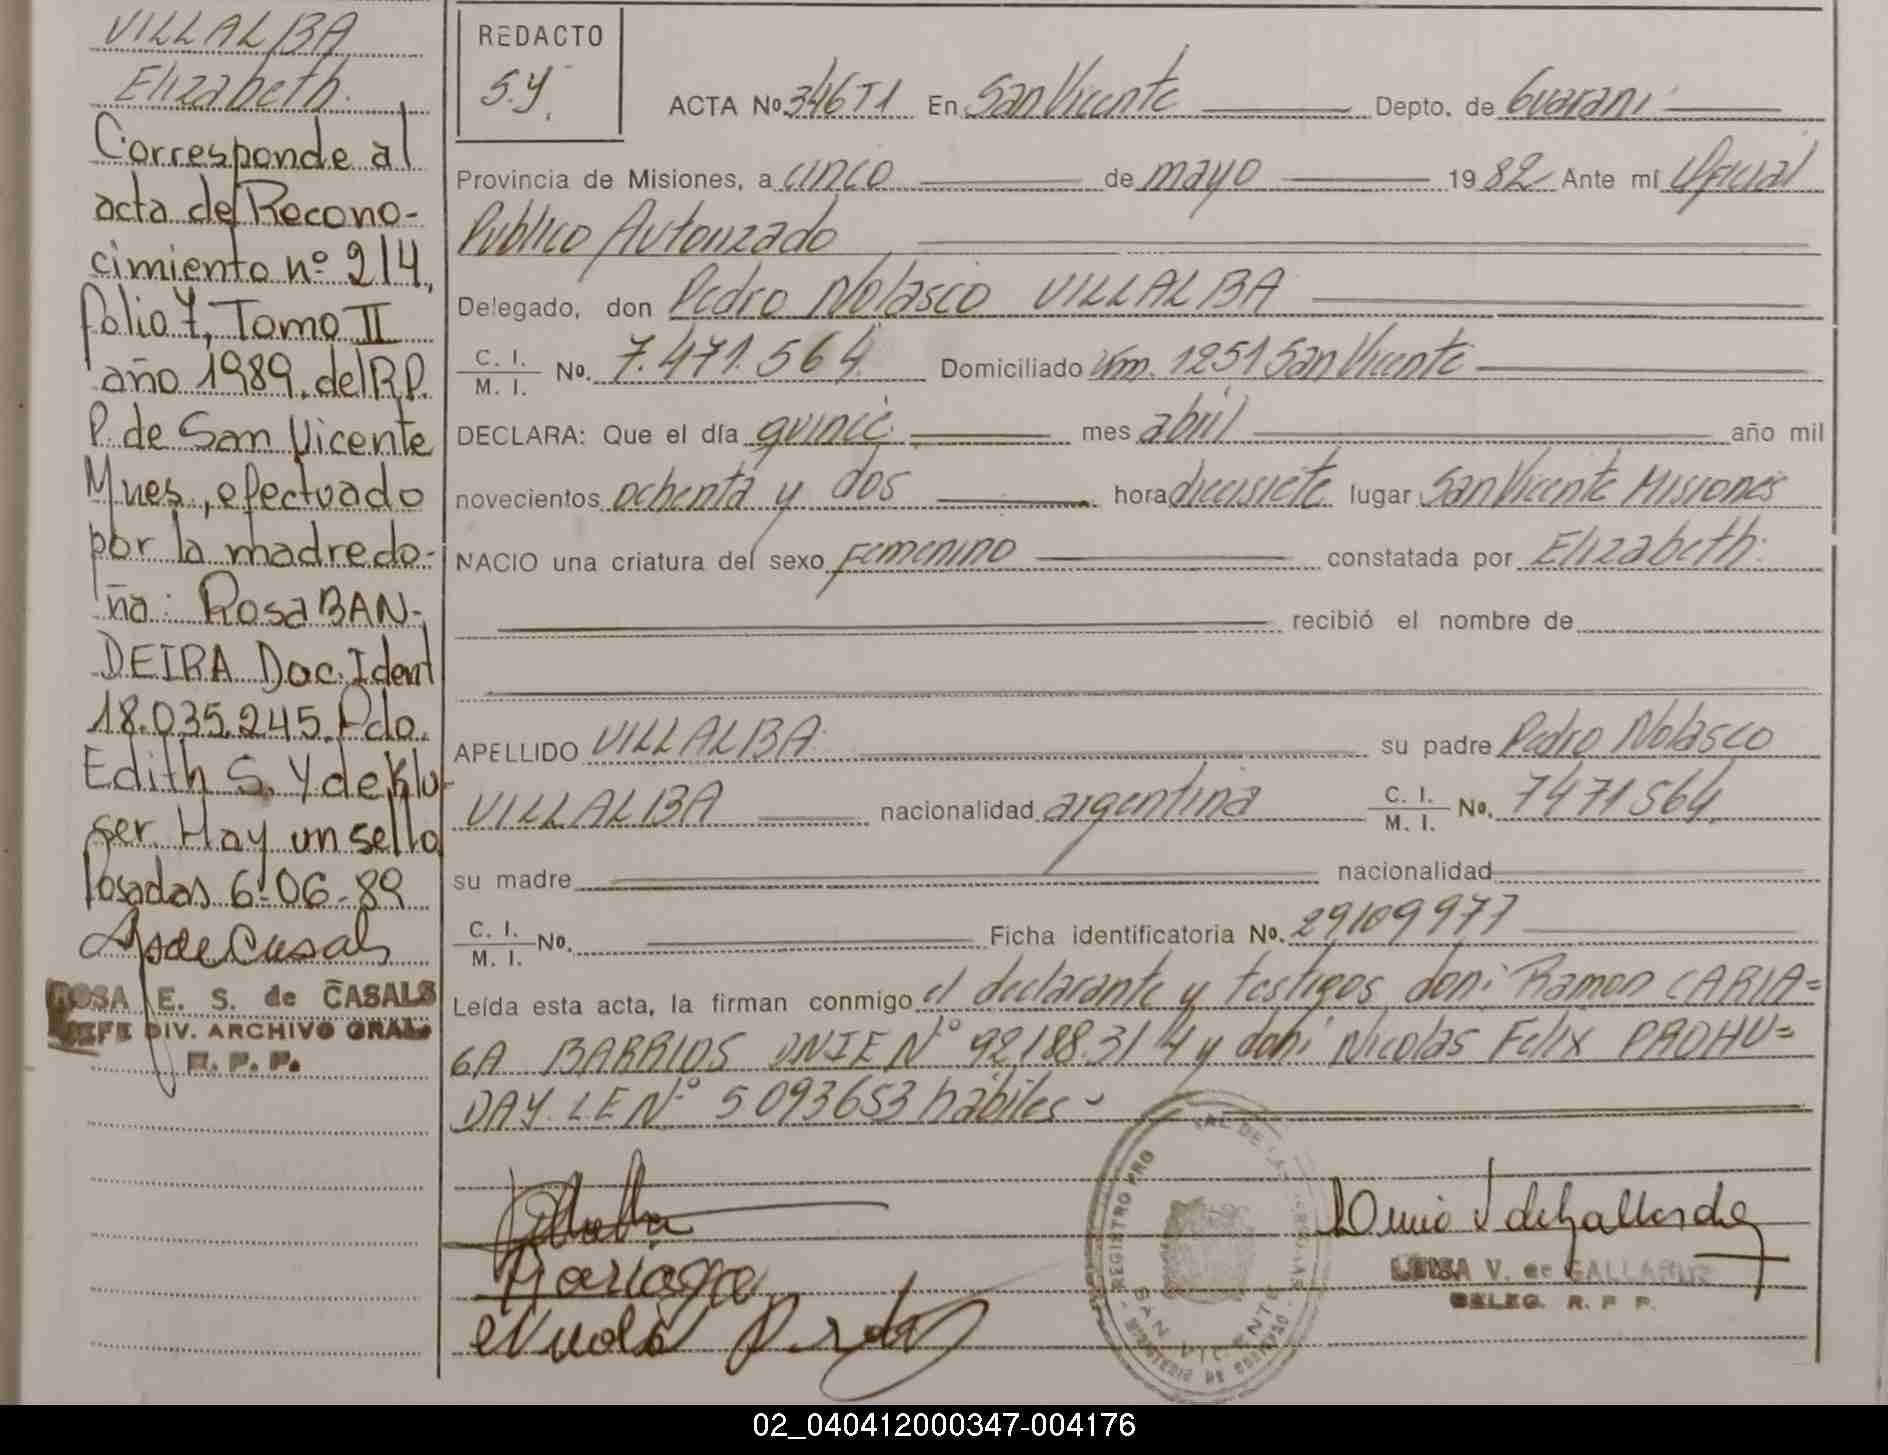 VILLALBA
Elizabeth.
Corresponde al
acta de Recono-
cimiento nº 214,
folio 7, Tomo II
año 1989, del R.P.
P. de San Vicente
Mnes, efectuado
por la madre do-
ña: Rosa BAN-
DEIRA Doc. Ident
18.035.245. Fdo.
Edith S. Y de Klu-
ser. Hay un sello
Posadas 6-06-89
de Casals
ROSA E. S. de CASALS
JEFE DIV. ARCHIVO GRAL.
R. P. P.
REDACTO
S.Y.
ACTA Nº 346 T1 En San Vicente Depto. de Guarani
Provincia de Misiones, a cinco de mayo 1982 Ante mí Oficial
Publico Autorizado
Delegado, don Pedro Nolasco VILLALBA
C. I. / M. I. Nº. 7.471.564 Domiciliado Km. 1251 San Vicente
DECLARA: Que el día quince mes abril año mil
novecientos ochenta y dos hora diecisiete lugar San Vicente Misiones
NACIO una criatura del sexo Femenino constatada por Elizabeth.
recibió el nombre de
APELLIDO VILLALBA su padre Pedro Nolasco
VILLALBA nacionalidad argentina C. I. / M. I. Nº. 7471564
su madre nacionalidad
C. I. / M. I. Nº. Ficha identificatoria Nº. 29109977
Leída esta acta, la firman conmigo el declarante y testigos don: Ramon CARIA=
GA BARRIOS DNIE Nº 92.188.314 y don: Nicolas Felix PROHU=
DAY. LE Nº 5093653 hábiles-
Cariaga
REGISTRO PRO
AL DE LAS PERSONAS
SAN VICENTE
LUISA V. de GALLARDE
DELEG. R. P. P.
02_040412000347-004176